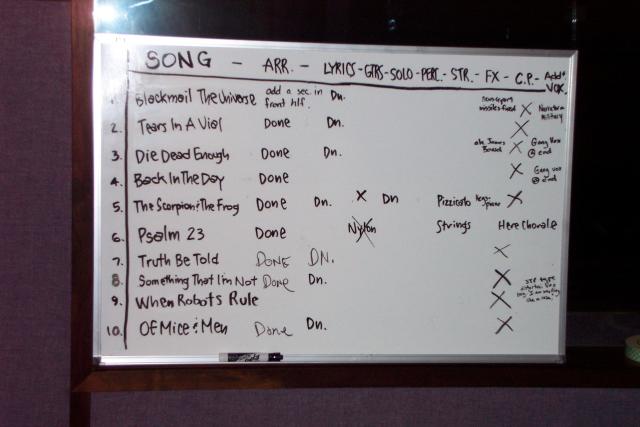 SONG - ARR. - LYRICS - GTRS - SOLO - PERC. - STR. - FX - C.P. - Add'l VOX.
1. Blackmail The Universe add a sec. in front hlf. Dn. X
2. Tears In A Vial Done Dn. X
3. Die Dead Enough Done Dn. X Gang Vox @ end
4. Back In The Day Done X Gang vox @ end
5. The Scorpion & The Frog Done Dn. X Dn Pizzicato X
6. Psalm 23 Done Nylon Strings Here Chorale
7. Truth Be Told DONE DN. X
8. Something That I'm Not Done Dn. X
9. When Robots Rule X
10. Of Mice & Men Done Dn. X